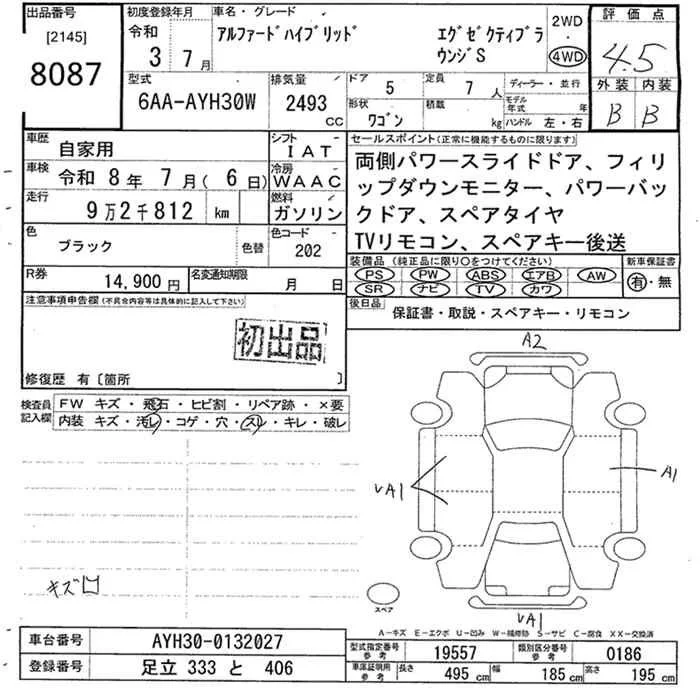 出品番号
[2145]
8087
初度登録年月
令和
3 7月
車名・グレード
アルファードハイブリッド エグゼクティブラウンジS
2WD
・
4WD
評価点
4.5
外装 内装
B B
型式
6AA-AYH30W
排気量
2493 CC
ドア 5
定員 7人
ディーラー・並行
形状 ワゴン
積載 kg
モデル年式 年
ハンドル 左・右
車歴 自家用
シフト IAT
車検 令和 8年 7月( 6日)
冷房 WAAC
走行 9万2千812 km
燃料 ガソリン
色 ブラック 色替
色コード 202
R券 14,900円
名変通知期限 月 日
セールスポイント(正常に機能するものに限ります)
両側パワースライドドア、フィリ
ップダウンモニター、パワーバッ
クドア、スペアタイヤ
TVリモコン、スペアキー後送
装備品 (純正品に限り○をつけてください)
PS PW ABS エアB AW
SR ナビ TV カワ
新車保証書
有・無
後日品 保証書・取説・スペアキー・リモコン
注意事項申告欄(不具合内容等は具体的に記入して下さい)
初出品
修復歴 有〔箇所 〕
検査員記入欄
FW キズ・飛石・ヒビ割・リペア跡・×要
内装 キズ・汚レ・コゲ・穴・スレ・キレ・破レ
キズ
A2
A1
VA1
VA1
スペア
A－キズ E－エクボ U－凹み W－補修跡 S－サビ C－腐食 XX－交換済
車台番号 AYH30-0132027
登録番号 足立 333 と 406
型式指定番号 参考 19557
類別区分番号 参考 0186
車庫証明用 参考 長さ 495 cm 幅 185 cm 高さ 195 cm